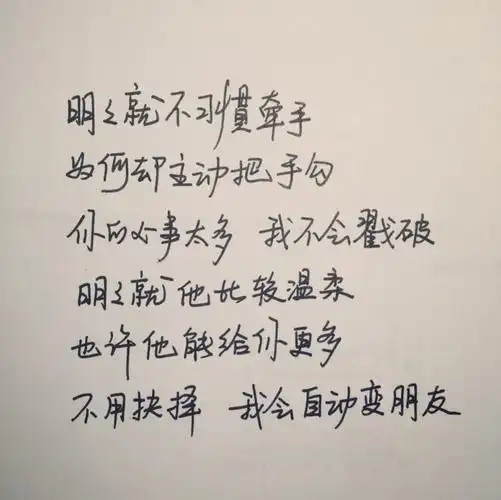 明々就不习惯牵手
为何却主动把手勾
你的心事太多 我不会戳破
明々就他比较温柔
也许他能给你更多
不用抉择 我会自动变朋友